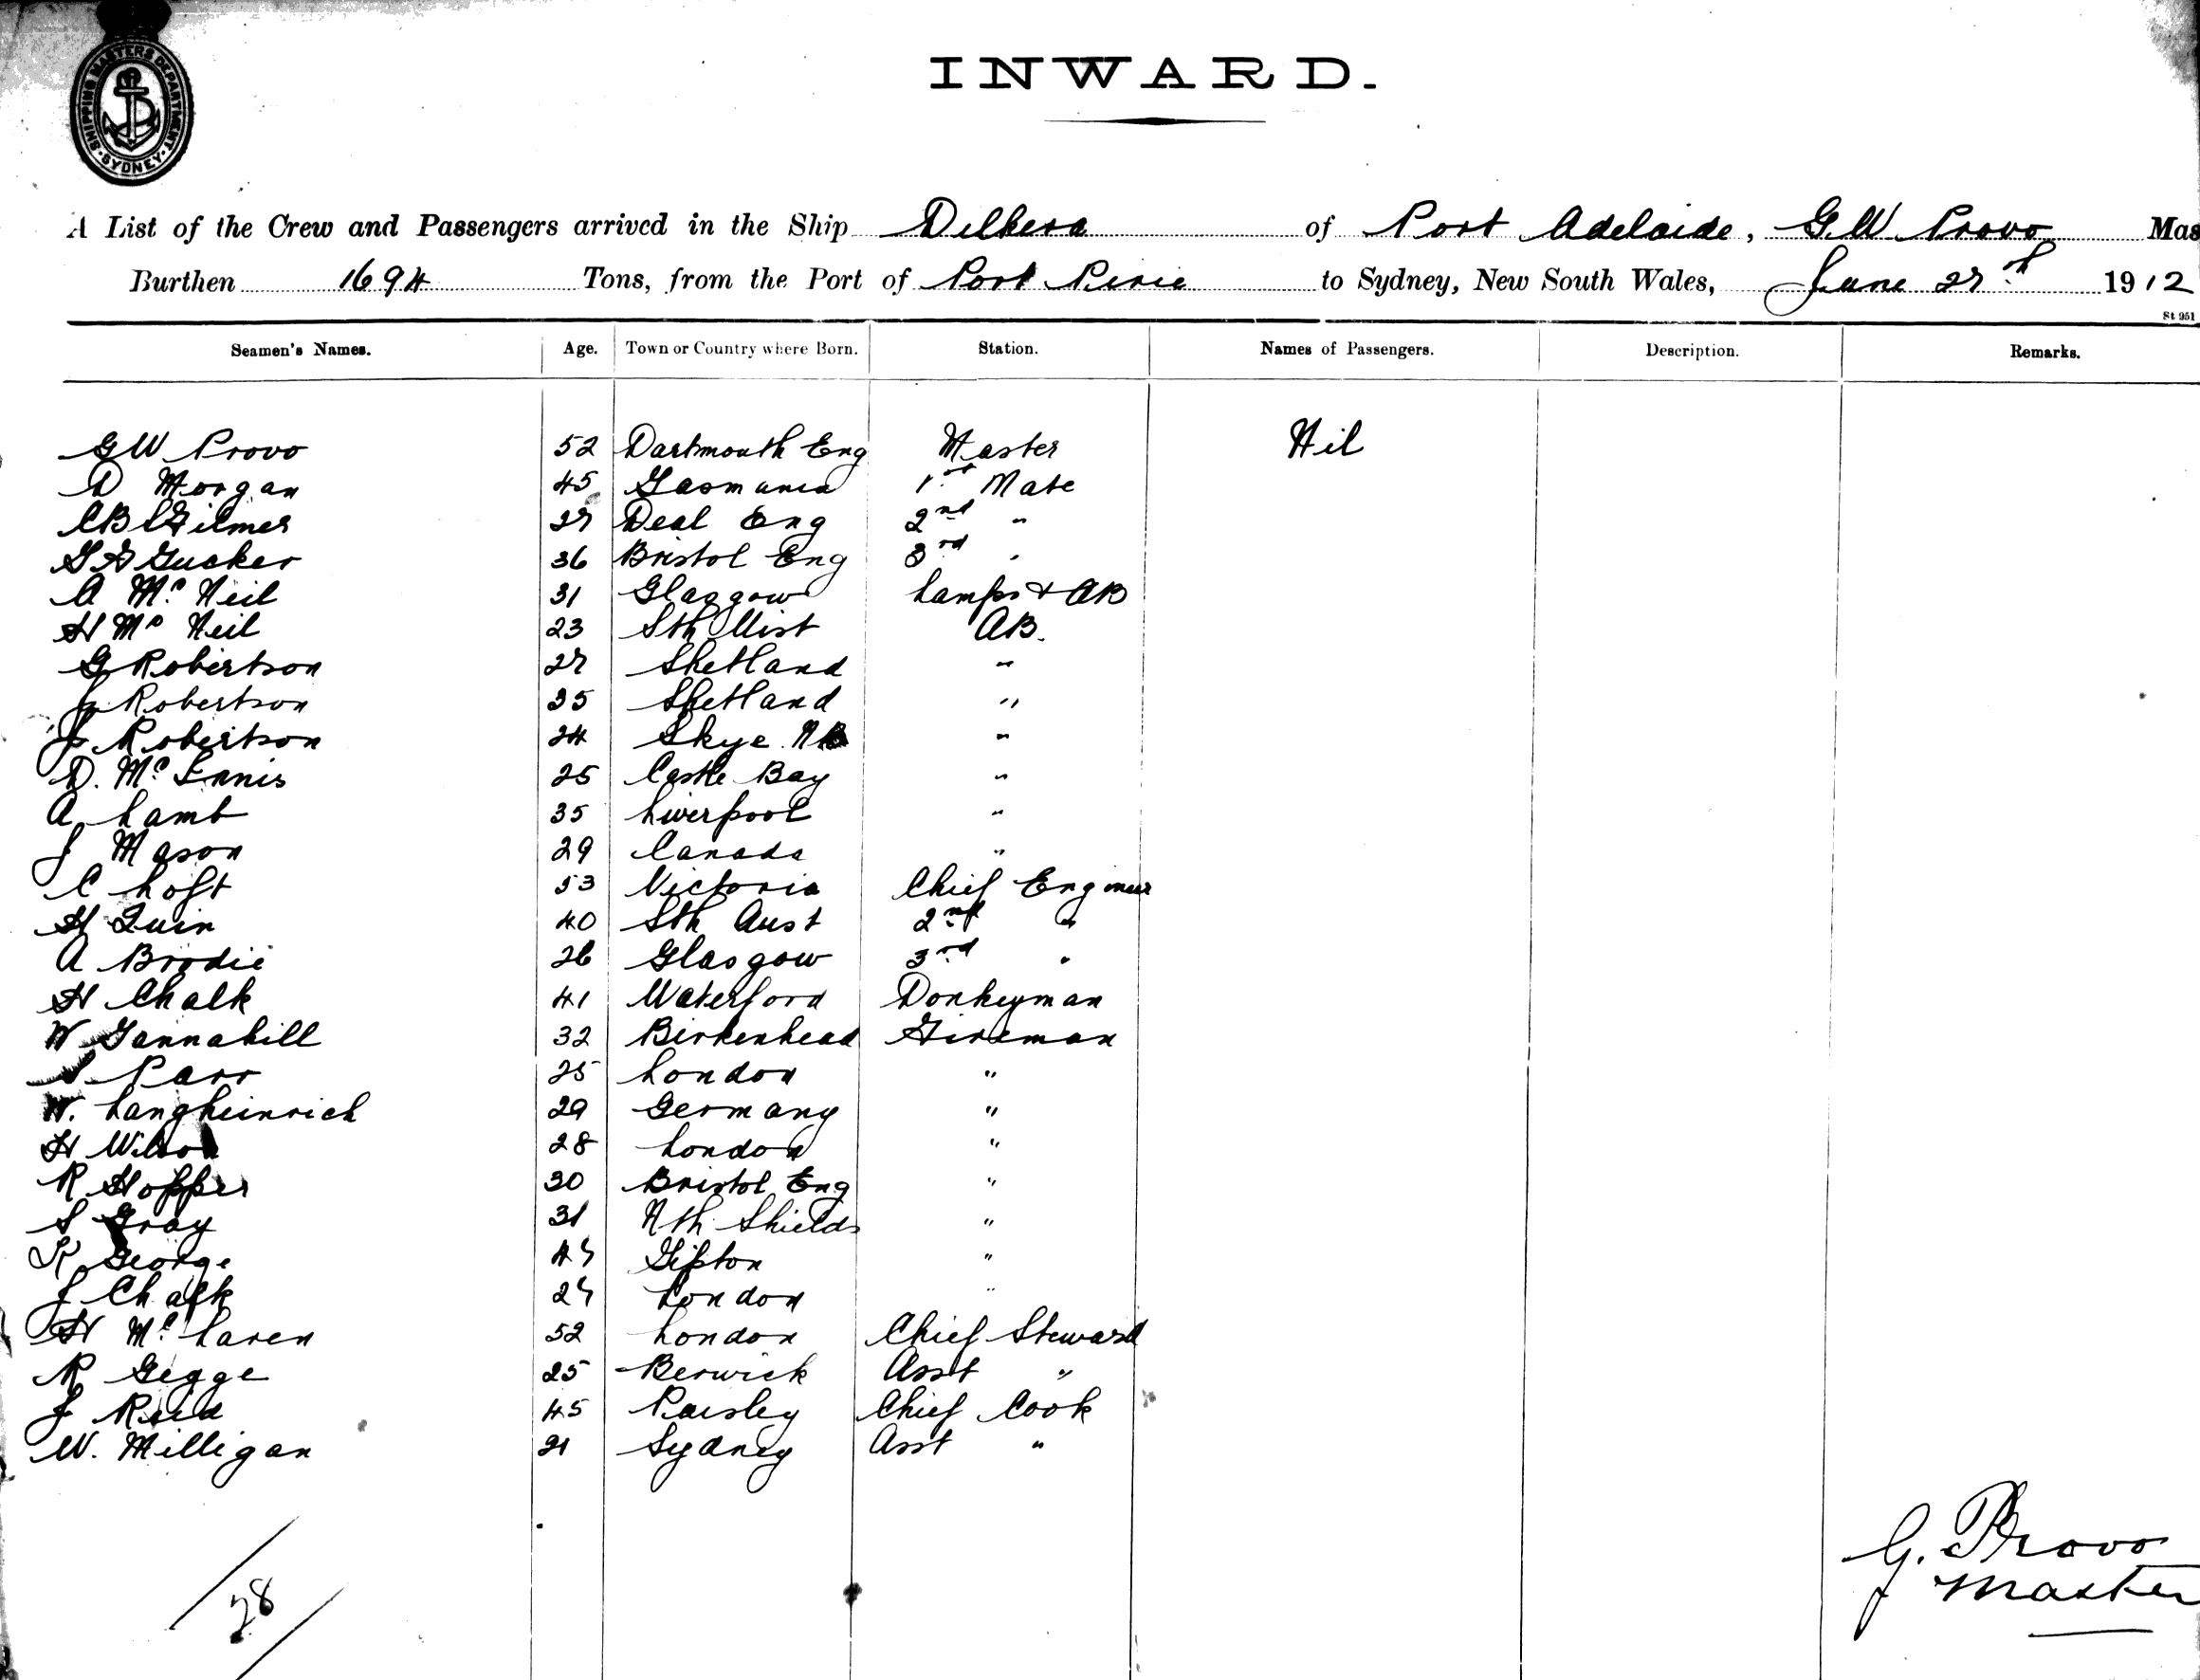 SHIPPING MASTERS DEPARTMENT
SYDNEY
INWARD.
A List of the Crew and Passengers arrived in the Ship Dilkera of Port Adelaide, G.W Provo Mas
Burthen 1694 Tons, from the Port of Port Pirie to Sydney, New South Wales, June 27th 1912
St 951
Seamen's Names. Age. Town or Country where Born. Station. Names of Passengers. Description. Remarks.
GW Provo 52 Dartmouth Eng Master Nil
D Morgan 45 Tasmania 1st Mate
Gilmer 27 Deal Eng 2nd "
Tucker 36 Bristol Eng 3rd "
A Mc Neil 31 Glasgow Lamps & AB
H Mc Neil 23 Sth Uist AB.
G Robertson 27 Shetland "
J Robertson 35 Shetland "
J Robertson 24 Skye NB "
D. Mc Innis 25 Castle Bay "
A Lamb 35 Liverpool "
J Mason 29 Canada "
C Loft 53 Victoria Chief Engineer
H Quin 40 Sth Aust 2nd "
A Brodie 26 Glasgow 3rd "
H Chalk 41 Waterford Donkeyman
W Tannahill 32 Birkenhead Fireman
S Parr 25 London "
W. Langheinrich 29 Germany "
H Wilson 28 London "
R Hopper 30 Bristol Eng "
S Gray 31 Nth Shields "
R George 47 Tipton "
J Chalk 27 London "
H Mc Laren 52 London Chief Steward
R Gegge 25 Berwick Asst "
J Reid 45 Paisley Chief Cook
W. Milligan 21 Sydney Asst "
28
G. Provo
Master